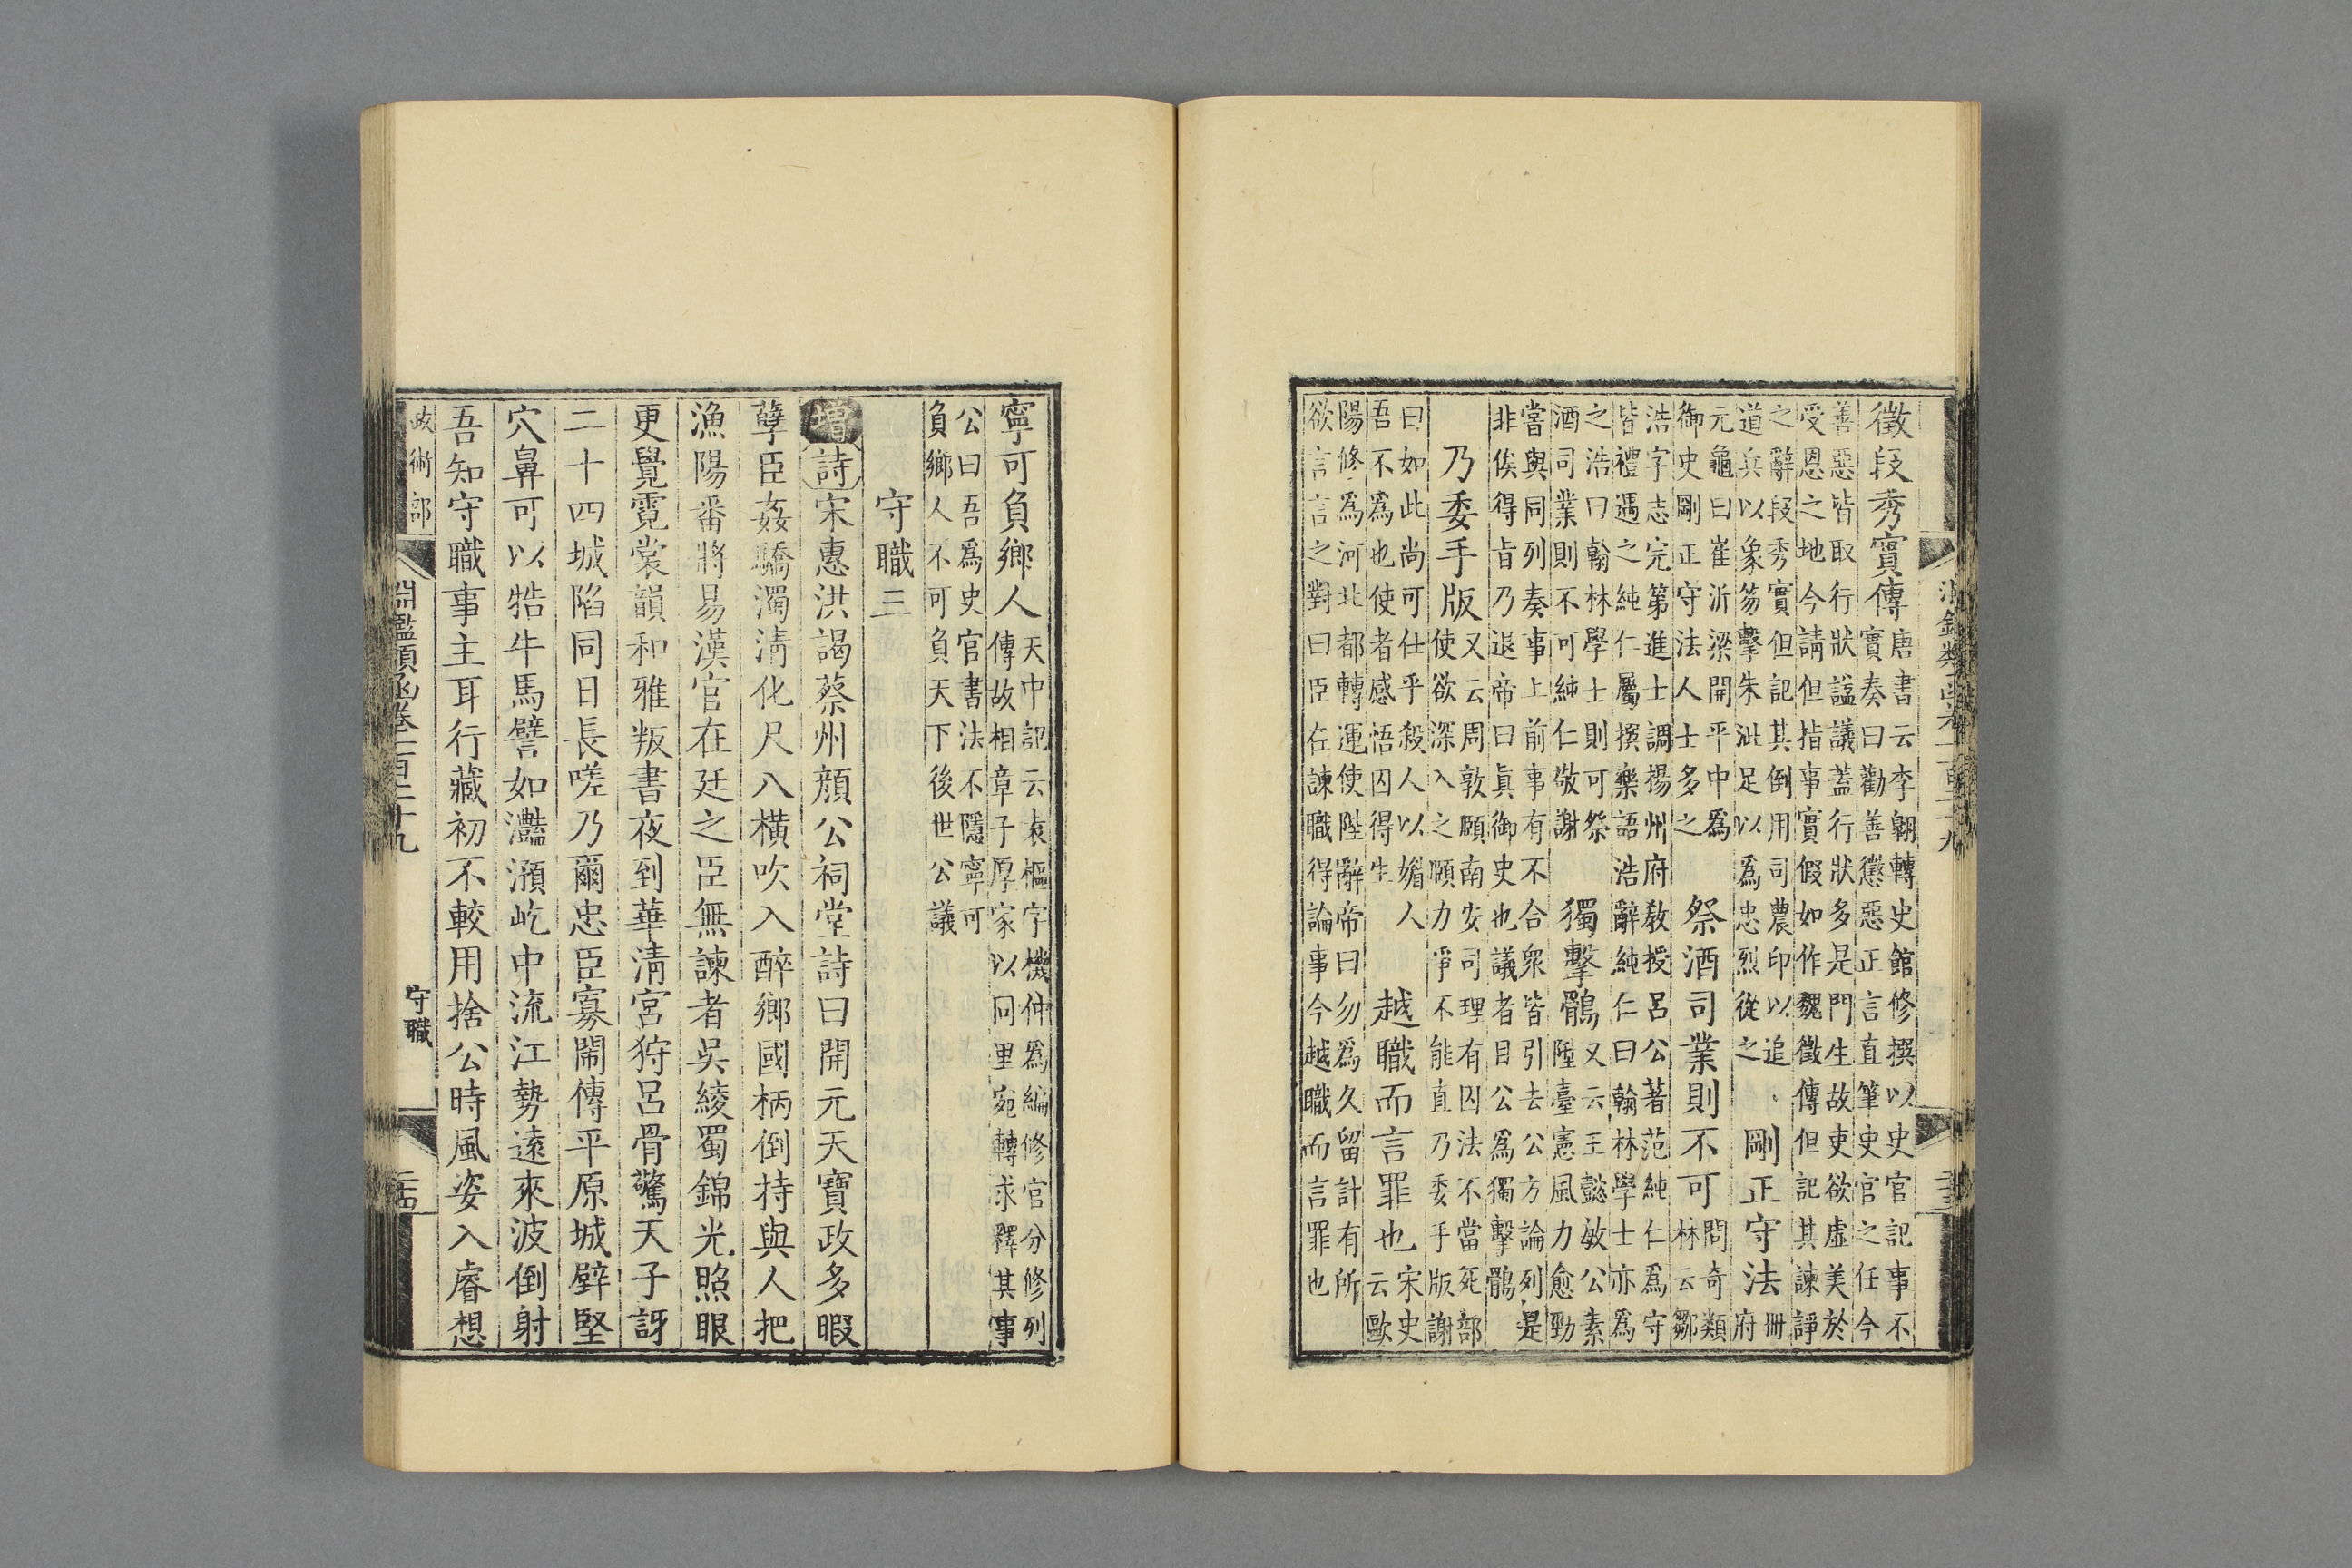 徵段秀實傳
唐書云李翱轉史館修撰以史官記事不
實奏曰勸善懲惡正言直筆史官之任今
善惡皆取行狀諡議蓋行狀多是門生故吏欲虛美於
受恩之地今請但指事實假如作魏徵傳但記其諫諍
之辭段秀實但記其倒用司農印以追
道兵以象笏擊朱泚足以爲忠烈從之
剛正守法
冊
府
元龜曰崔沂梁開平中爲
御史剛正守法人士多之
祭酒司業則不可
問奇類
林云鄒
浩字志完第進士調楊州府教授呂公著范純仁爲守
皆禮遇之純仁屬撰樂語浩辭純仁曰翰林學士亦爲
之浩曰翰林學士則可祭
酒司業則不可純仁敬謝
獨擊鶻
又云王懿敏公素
陞臺憲風力愈勁
嘗與同列奏事上前事有不合衆皆引去公方論列是
非俟得旨乃退帝曰眞御史也議者目公爲獨擊鶻
乃委手版
又云周敦頤南安司理有囚法不當死部
使欲深入之頤力爭不能直乃委手版謝
曰如此尚可仕乎殺人以媚人
吾不爲也使者感悟囚得生
越職而言罪也
宋史
云歐
陽修爲河北都轉運使陛辭帝曰勿爲久留計有所
欲言言之對曰臣在諫職得論事今越職而言罪也
寧可負鄉人
天中記云袁樞字機仲爲編修官分修列
傳故相章子厚家以同里宛轉求釋其事
公曰吾爲史官書法不隱寧可
負鄉人不可負天下後世公議
守職三
增詩宋惠洪謁蔡州顏公祠堂詩曰開元天寶政多暇
孽臣姦驕濁淸化尺八橫吹入醉鄉國柄倒持與人把
漁陽番將易漢官在廷之臣無諫者吳綾蜀錦光照眼
更覺霓裳韻和雅叛書夜到華淸宮狩呂骨驚天子訝
二十四城陷同日長嗟乃爾忠臣寡鬧傳平原城壁堅
穴鼻可以牿牛馬譬如灩澦屹中流江勢遠來波倒射
吾知守職事主耳行藏初不較用捨公時風姿入睿想
政術部
淵鑑類函卷一百二十九
守職